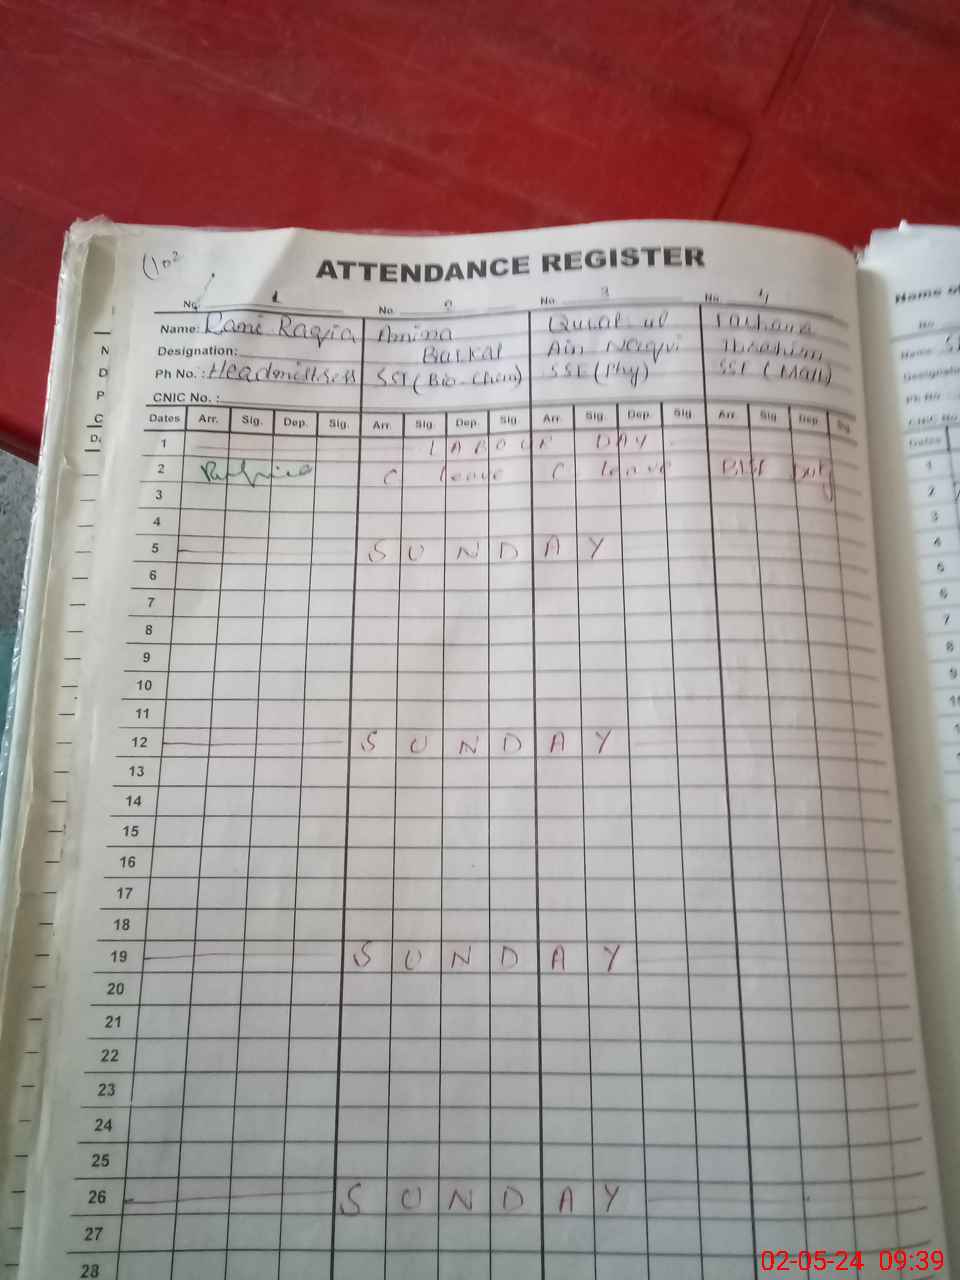 ATTENDANCE REGISTER
No. 1 No. 2 No. 3 No. 4
Name: Rani Raqia Amina Qurat ul
Designation: Barkat Ain Naqvi Ibrahim
Ph No.: Headmistress SST (Bio-Chem) SSE (Phy) SSE (Math)
CNIC No. :
Dates Arr. Sig. Dep. Sig. Arr. Sig. Dep. Sig Arr. Sig. Dep. Sig Arr. Sig Dep Sig
1 LABOUR DAY
2 C leave C leave Duty
3
4
5 SUNDAY
6
7
8
9
10
11
12 SUNDAY
13
14
15
16
17
18
19 SUNDAY
20
21
22
23
24
25
26 SUNDAY
27
28
Name of
No
Name
Dates
1
2
3
4
5
6
7
8
9
02-05-24 09:39